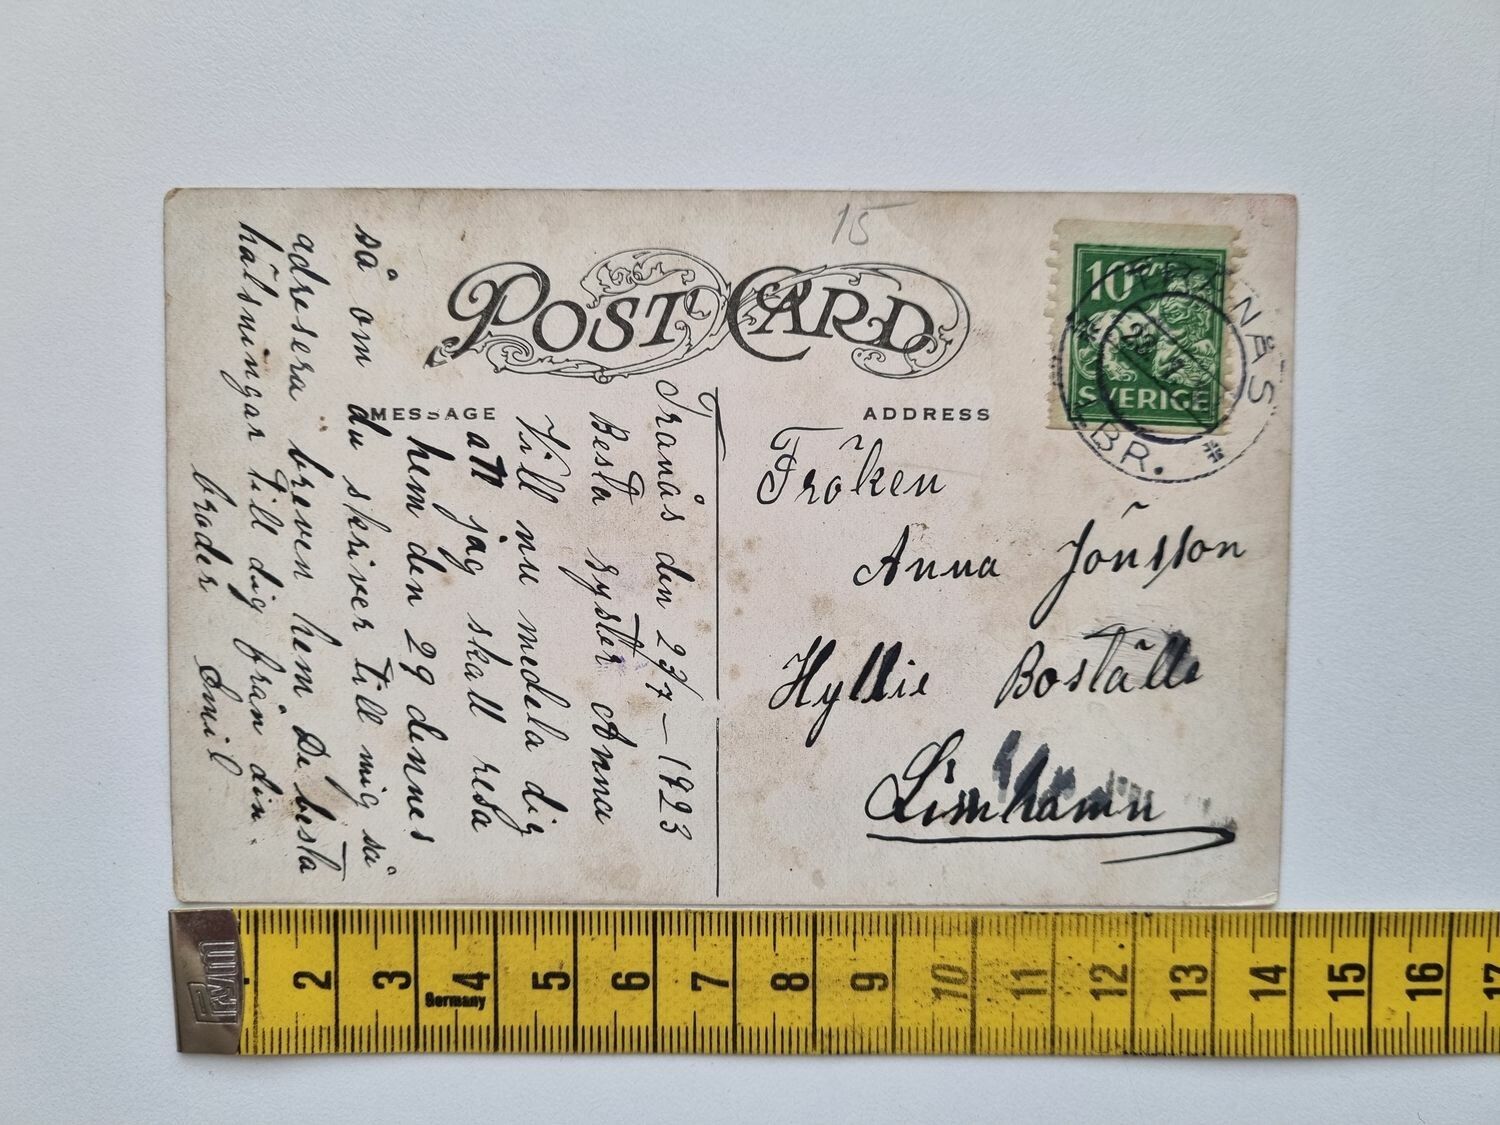 15
POST CARD
MESSAGE
ADDRESS
10
SVERIGE
TRANÅS
LBR.
Tranås den 23/7 – 1923
Besta syster Anna
Vill nu medela dig
att jag skall resa
hem den 29 dennes
så om du skriver till mig så
adresera breven hem. De besta
hälsningar till dig från din
broder Emil
Fröken
Anna Jönsson
Hyllie Boställe
Limhamn
2 3 4 5 6 7 8 9 10 11 12 13 14 15 16 17
Germany